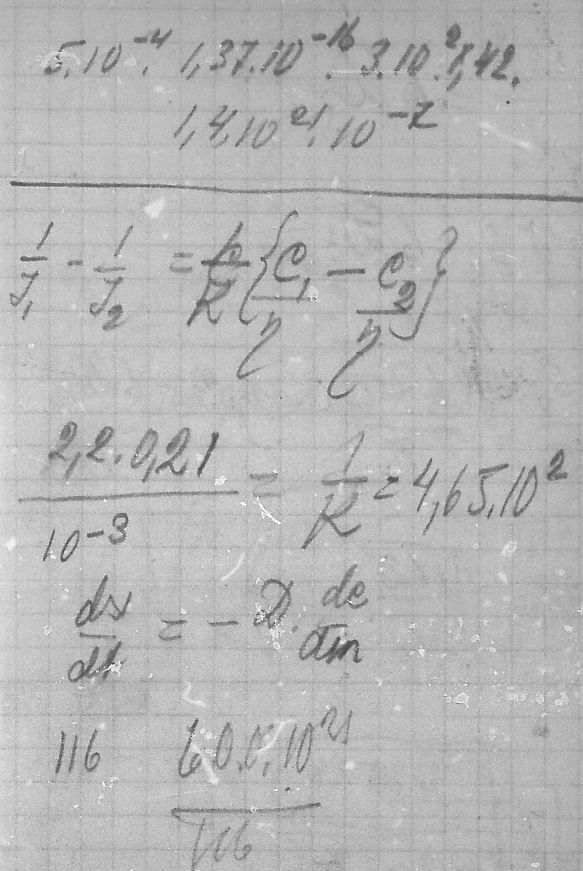 5.10⁻⁴. 1,37.10⁻¹⁶. 3.10². 1,42.
1,4.10²¹.10⁻²
1/J₁ - 1/J₂ = k/K {C₁/η - C₂/η}
2,2.0,21/10⁻³ = 1/K = 4,65.10²
dx/dt = - D. dc/dm
116 60.0.10²¹/116